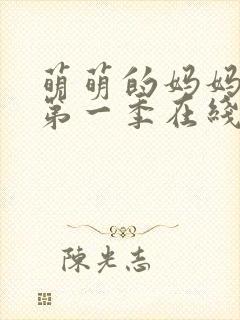 萌萌的妈妈
第一季在綫
陳光志